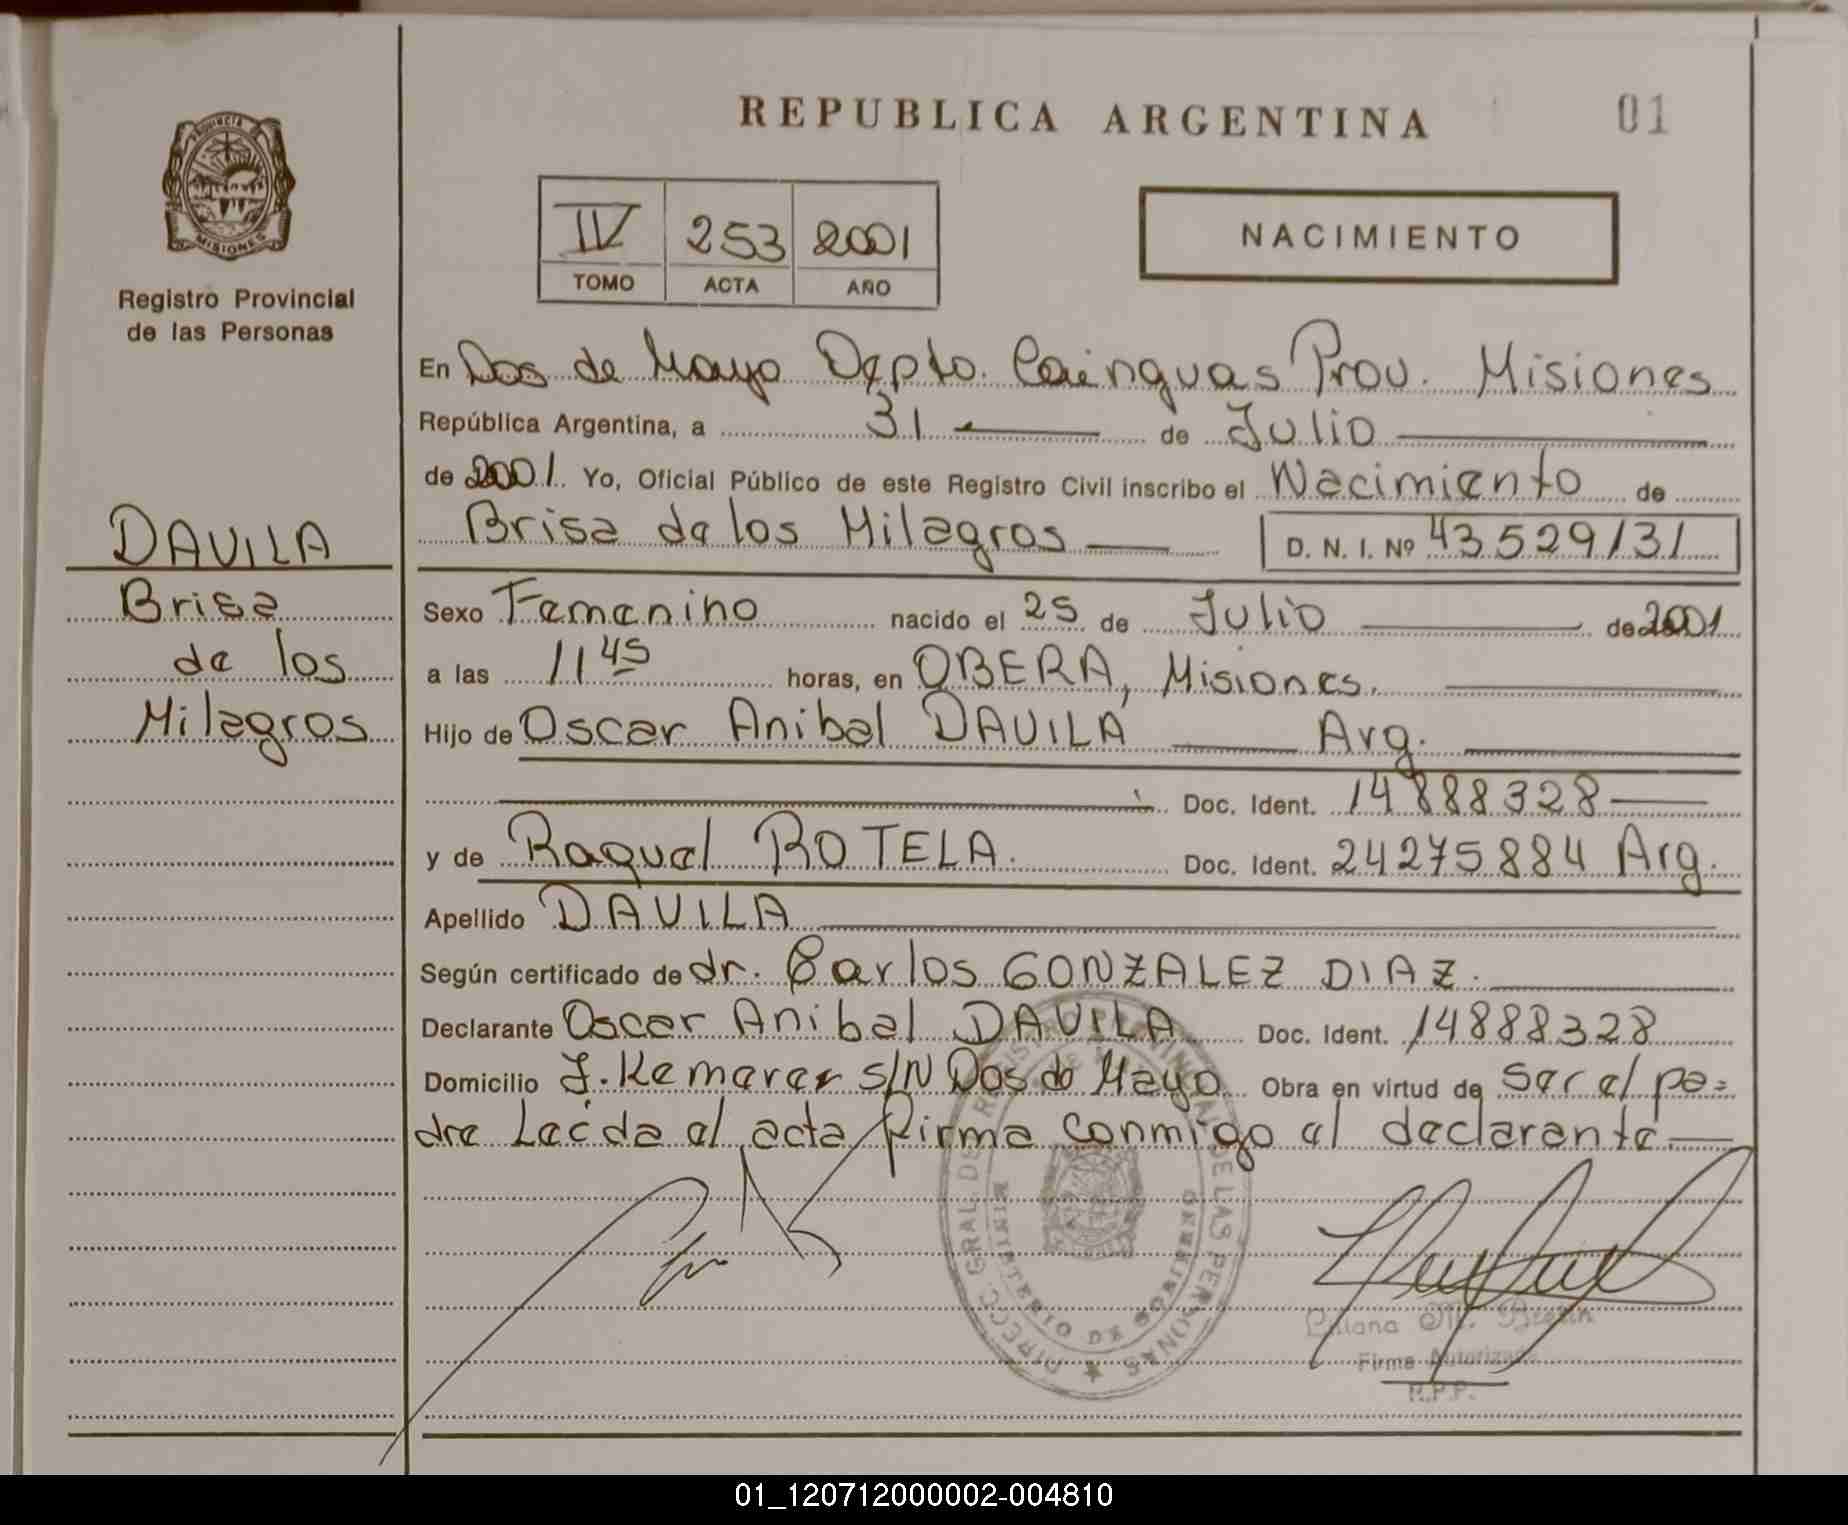 REPUBLICA ARGENTINA
01
PROVINCIA
MISIONES
Registro Provincial
de las Personas
IV 253 2001
TOMO ACTA AÑO
NACIMIENTO
En Dos de Mayo Depto. Cainguas Prov. Misiones
República Argentina, a 31 de Julio
de 2001 Yo, Oficial Público de este Registro Civil inscribo el Nacimiento de
Brisa de los Milagros D. N. I. Nº 43529131
DAVILA
Brisa
de los
Milagros
Sexo Femenino nacido el 25 de Julio de 2001
a las 11 45 horas, en OBERA, Misiones.
Hijo de Oscar Anibal DAVILA Arg.
Doc. Ident. 14888328
y de Raquel ROTELA. Doc. Ident. 24275884 Arg.
Apellido DAVILA
Según certificado de dr. Carlos GONZALEZ DIAZ.
Declarante Oscar Anibal DAVILA Doc. Ident. 14888328
Domicilio J. Kemerer S/N Dos de Mayo Obra en virtud de ser el pa=
dre Leída el acta firma conmigo el declarante
DIRECC. GRAL. DEL REGISTRO PROVINCIAL DE LAS PERSONAS
MINISTERIO DE GOBIERNO
Firma Autorizada
R.P.P.
01_120712000002-004810